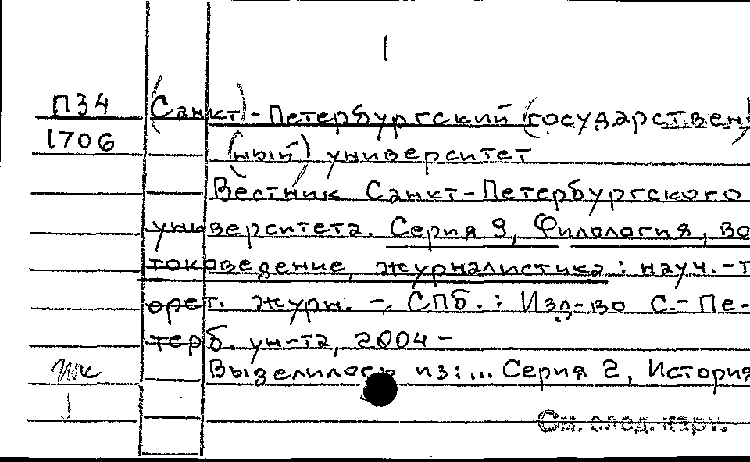 1
П34 (Санкт)-Петербургский (государствен
1706 (ный) университет
Вестник Санкт-Петербургского
университета. Серия 9, Филология, во
токоведение, журналистика : науч.-т
орет. журн. -, СПб. : Изд-во С.-Пе-
терб. ун-та, 2004 -
Выделилась из: ... Серия 2, История
См. след. карт.